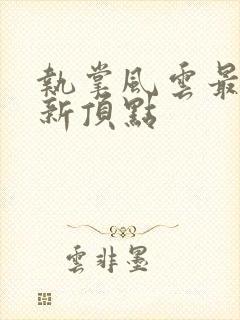 執掌風雲最
新頂點
雲非墨